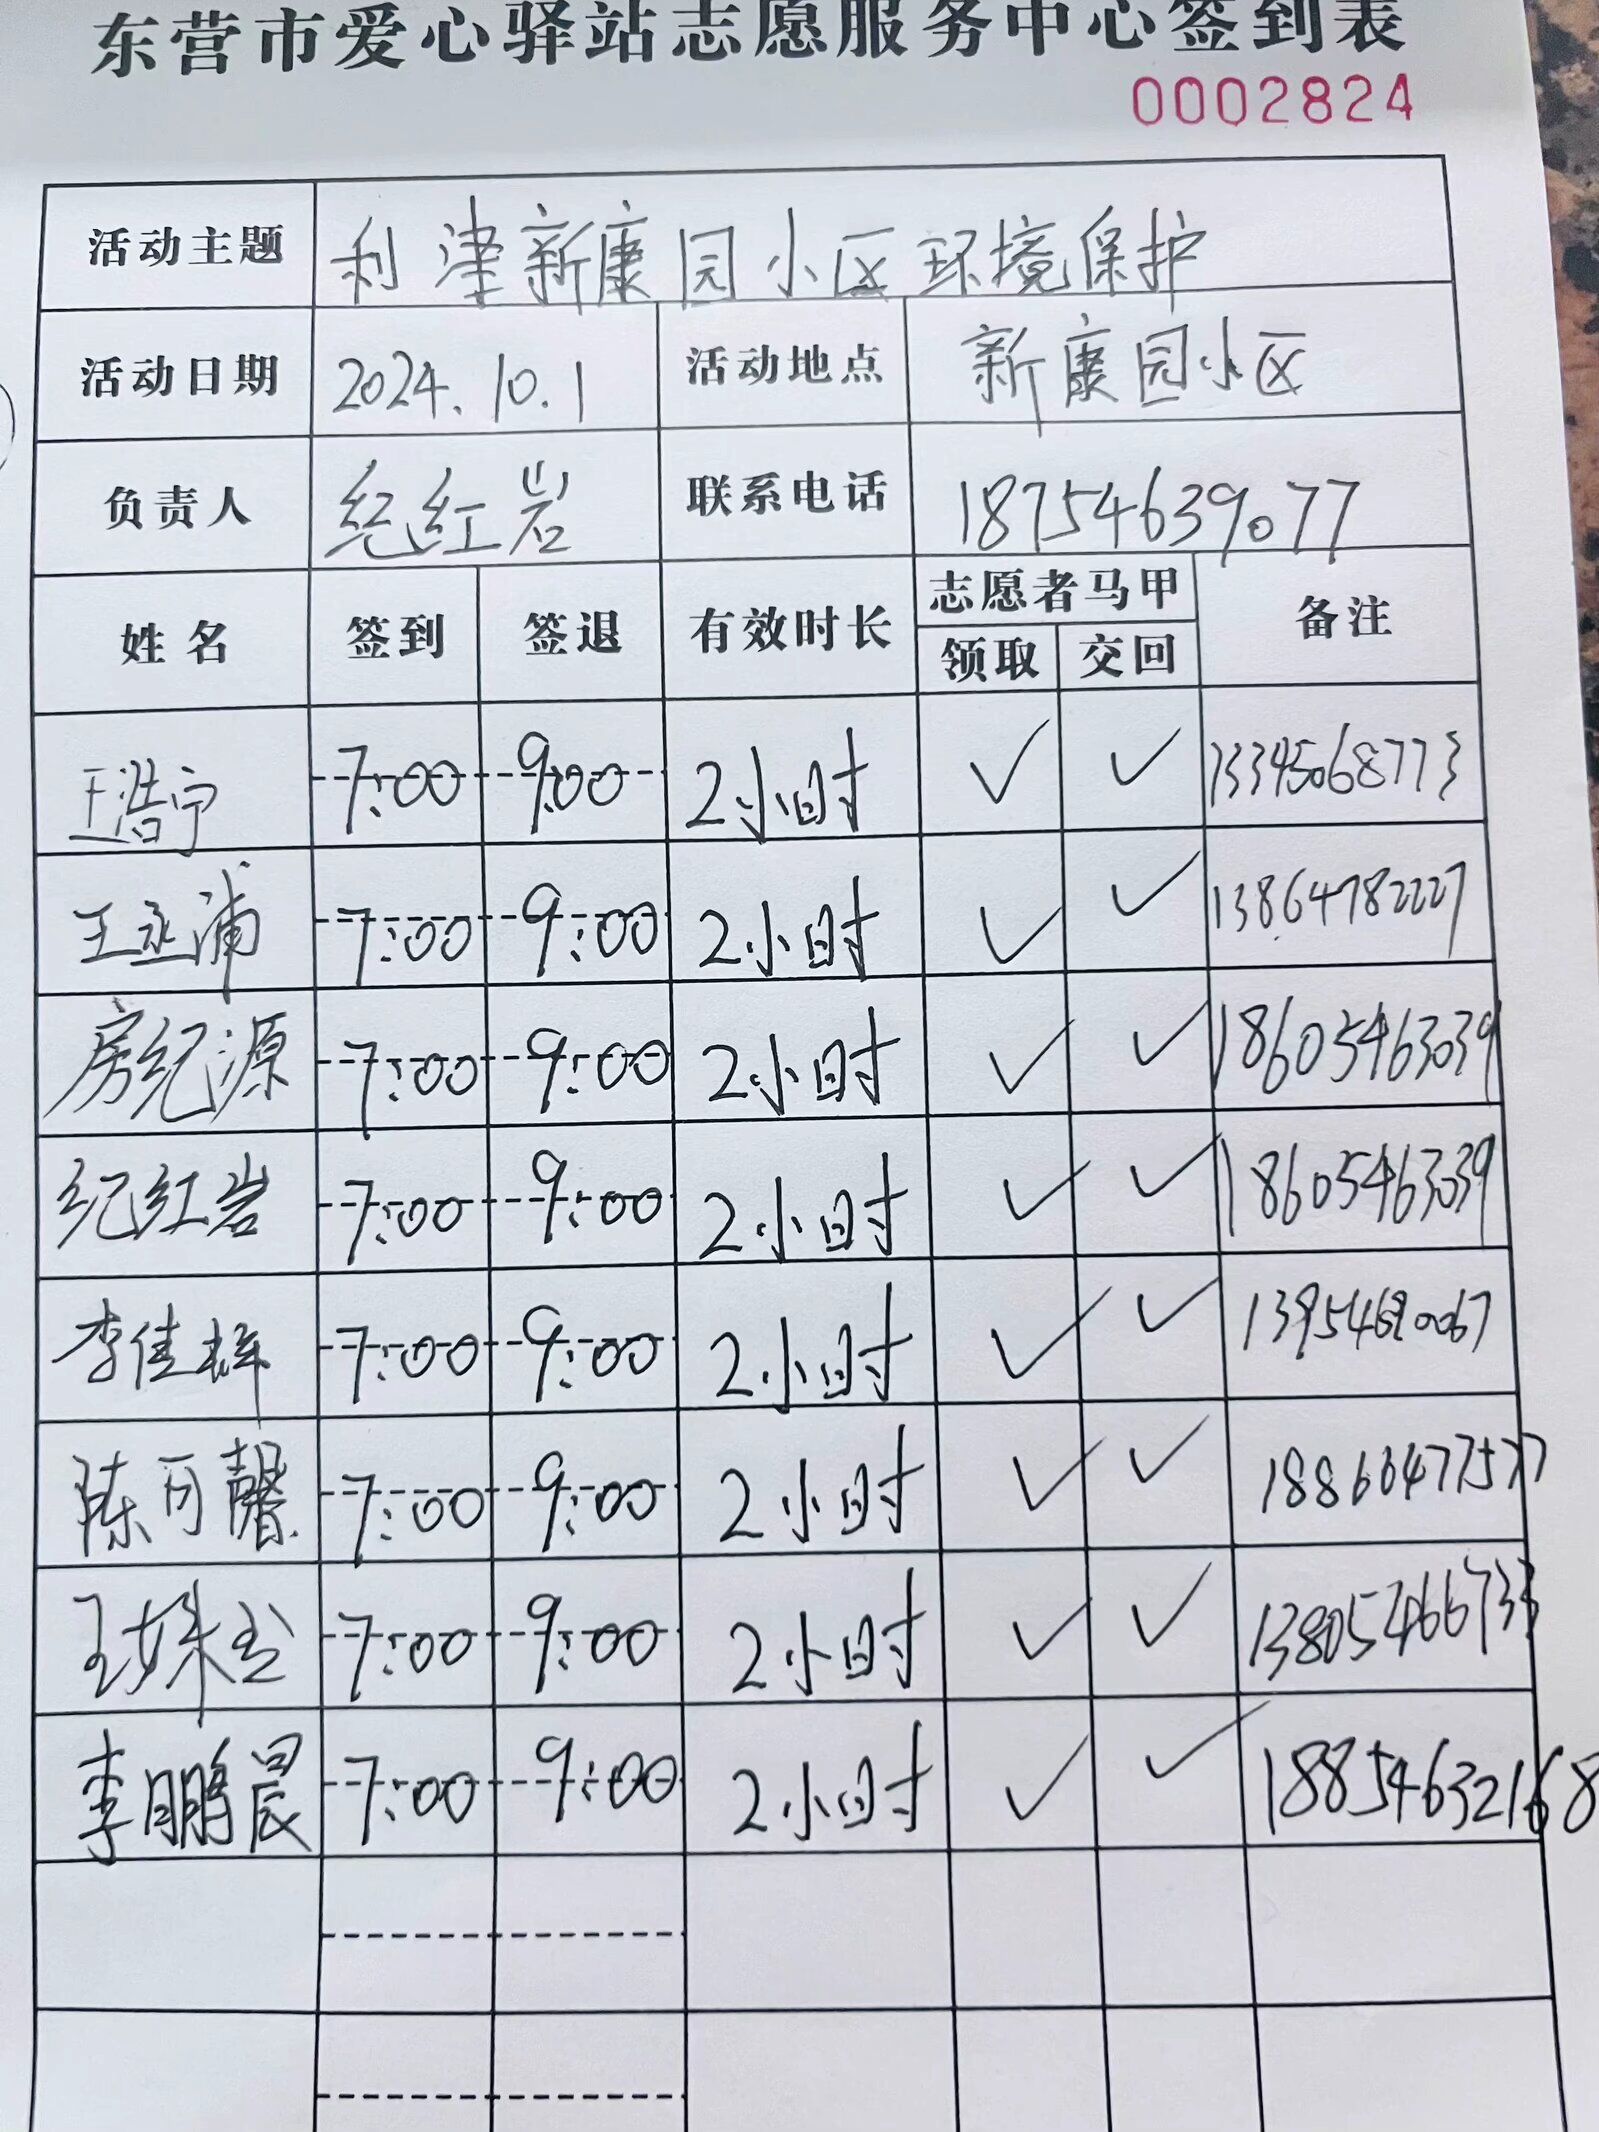 东营市爱心驿站志愿服务中心签到表
0002824
活动主题 利津新康园小区环境保护
活动日期 2024.10.1 活动地点 新康园小区
负责人 纪红岩 联系电话 18754639077
姓名 签到 签退 有效时长 志愿者马甲 备注
领取 交回
王浩宁 7:00 9:00 2小时 ✓ ✓ 13345068773
王丞浦 7:00 9:00 2小时 ✓ ✓ 13864782227
房纪源 7:00 9:00 2小时 ✓ ✓ 18605463039
纪红岩 7:00 9:00 2小时 ✓ ✓ 18605463039
李佳 7:00 9:00 2小时 ✓ ✓ 13954690067
陈可馨 7:00 9:00 2小时 ✓ ✓ 18866477577
王姝 7:00 9:00 2小时 ✓ ✓ 13805466733
李鹏晨 7:00 9:00 2小时 ✓ ✓ 18854632168